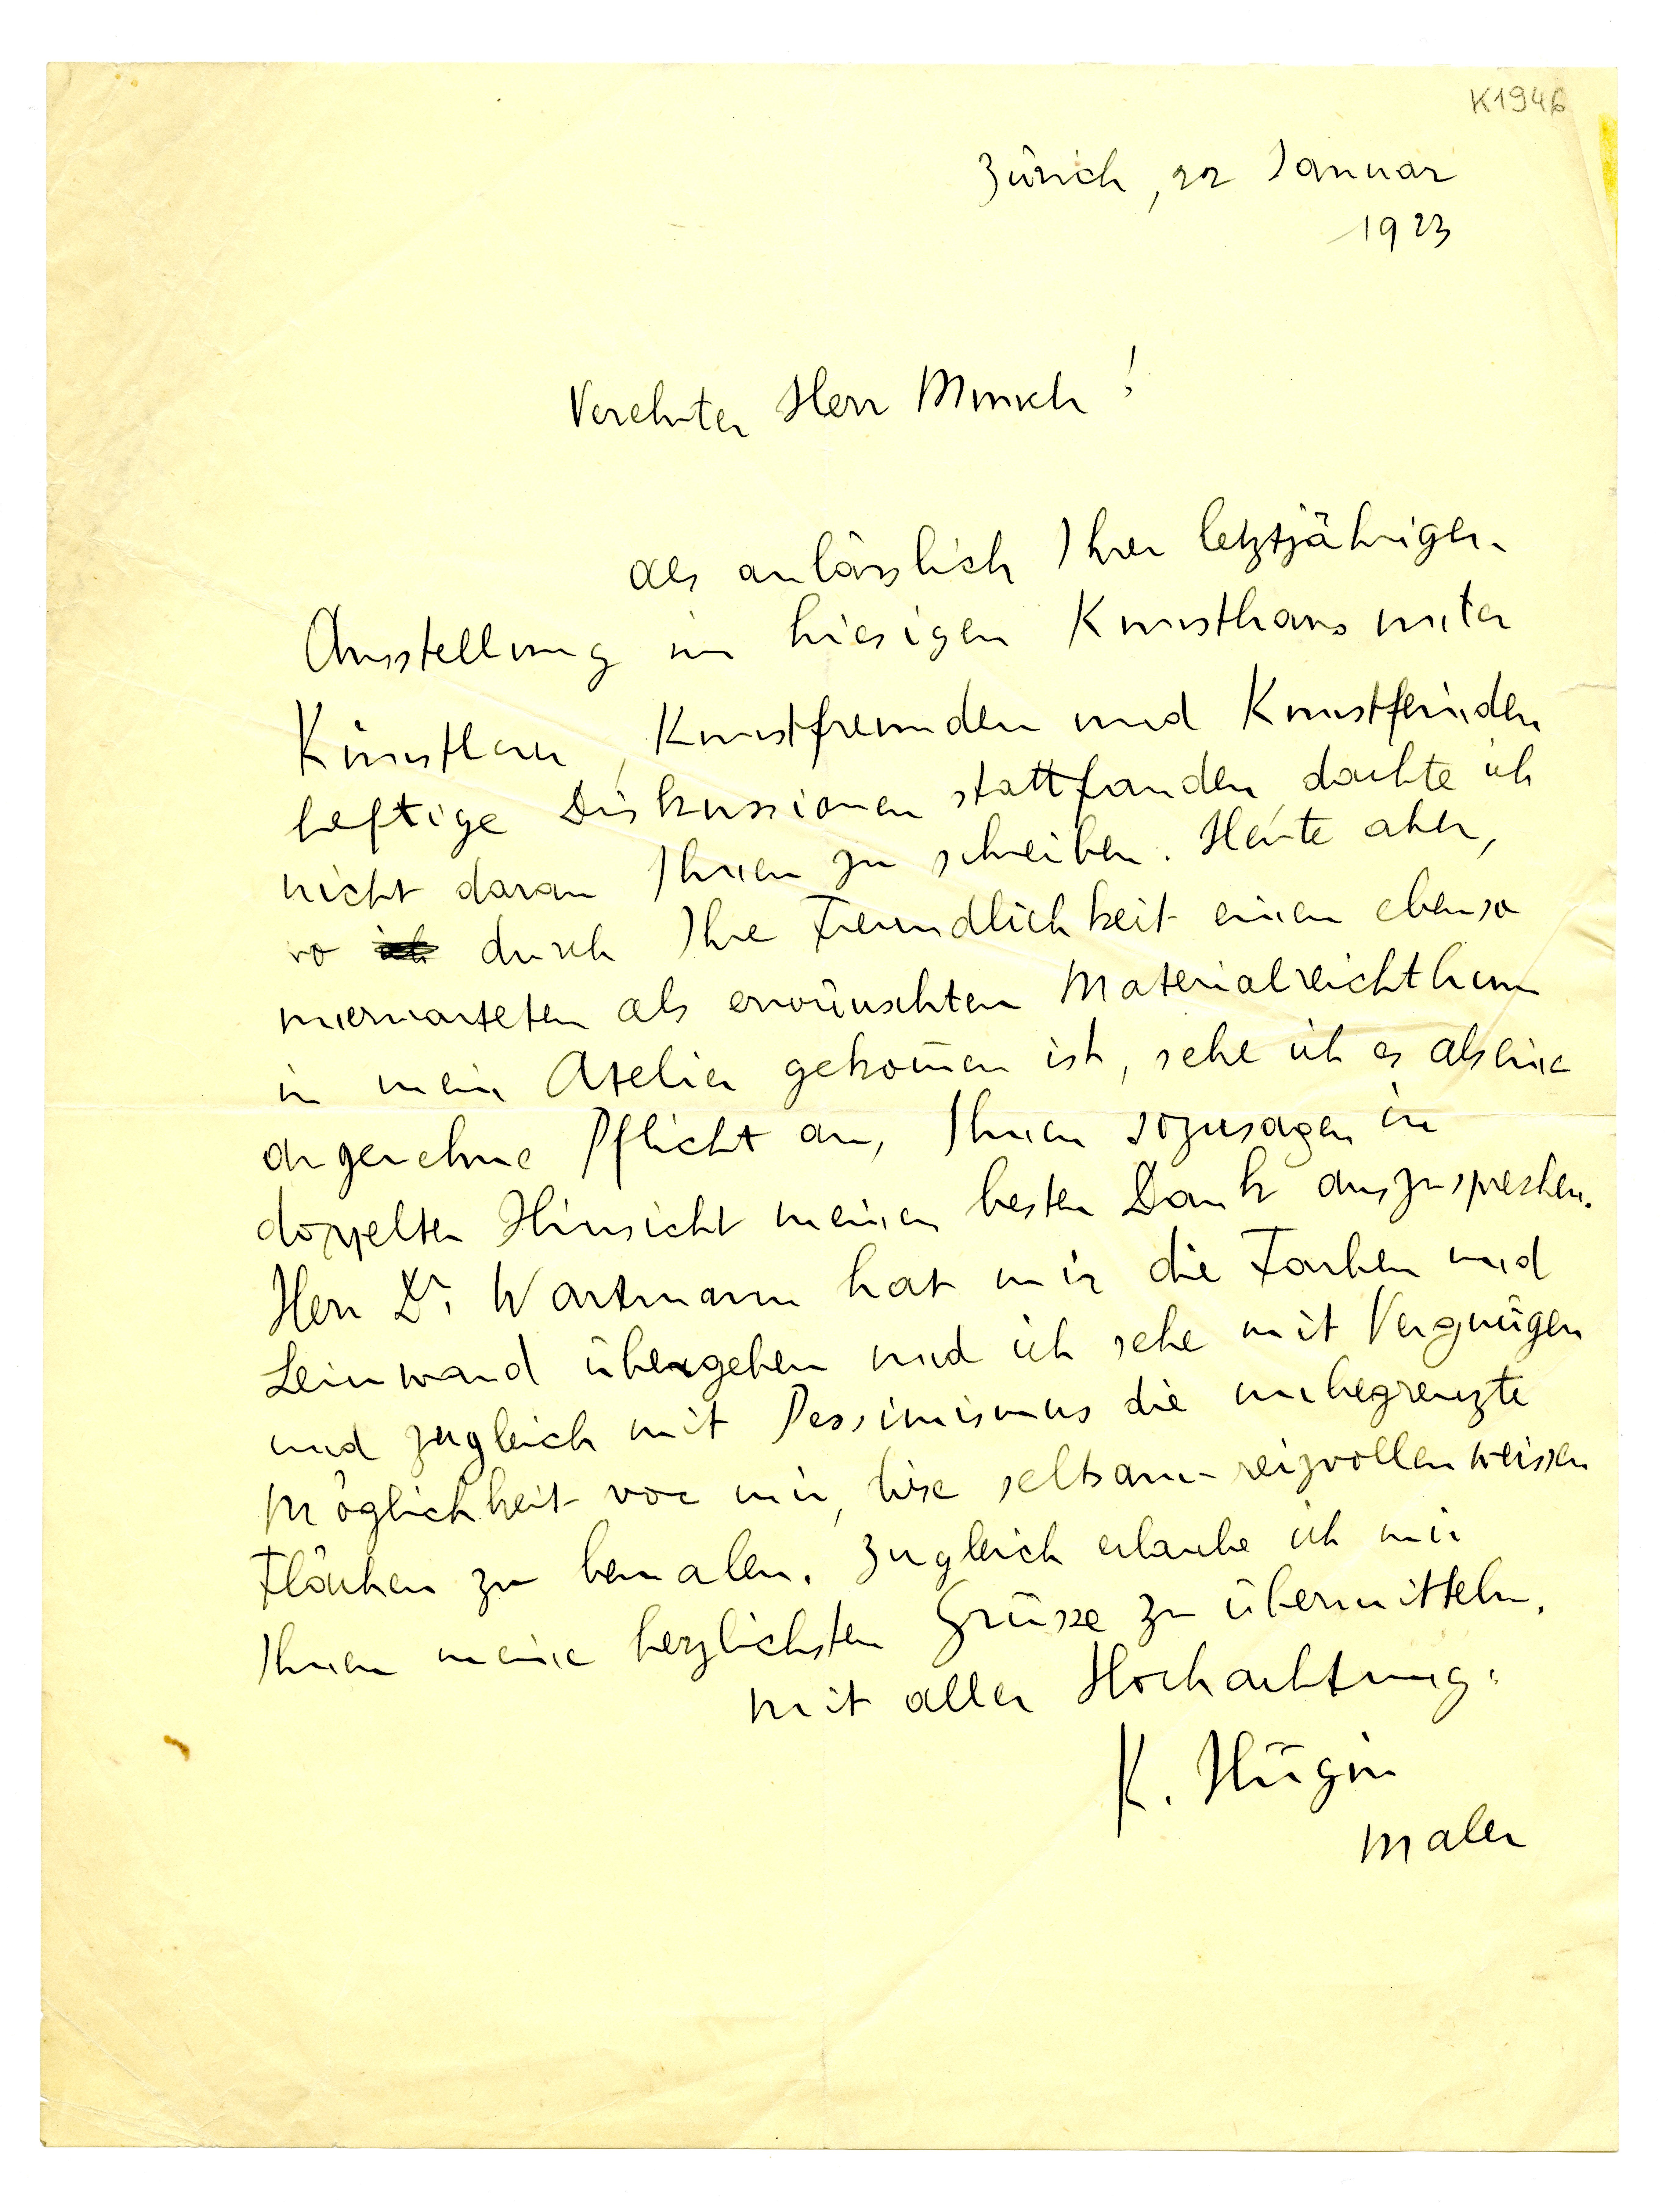 K1946
Zürich, 22 Januar
1923
Verehrter Herr Munch!
als anlässlich Ihrer letztjährigen
Ausstellung im hiesigen Kunsthaus unter
Künstlern, Kunstfreunden und Kunstfeinden
heftige Diskussionen stattfanden dachte ich
nicht daran Ihnen zu schreiben. Heute aber,
wo ich durch Ihre Freundlichkeit einen ebenso
unerwarteten als erwünschten Materialreichthum
in mein Atelier gekom̄en ist, sehe ich es als eine
angenehme Pflicht an, Ihnen sozusagen in
doppelter Hinsicht meinen besten Dank auszusprechen.
Herr Dr. Wartmann hat mir die Farben und
Leinwand übergeben und ich sehe mit Vergnügen
und zugleich mit Pessimismus die unbegrenzte
Möglichkeit vor mir, diese seltsam-reizvollen weissen
Flächen zu bemalen. Zugleich erlaube ich mir
Ihnen meine herzlichsten Grüsse zu übermitteln.
Mit aller Hochachtung:
K. Hügin
Maler